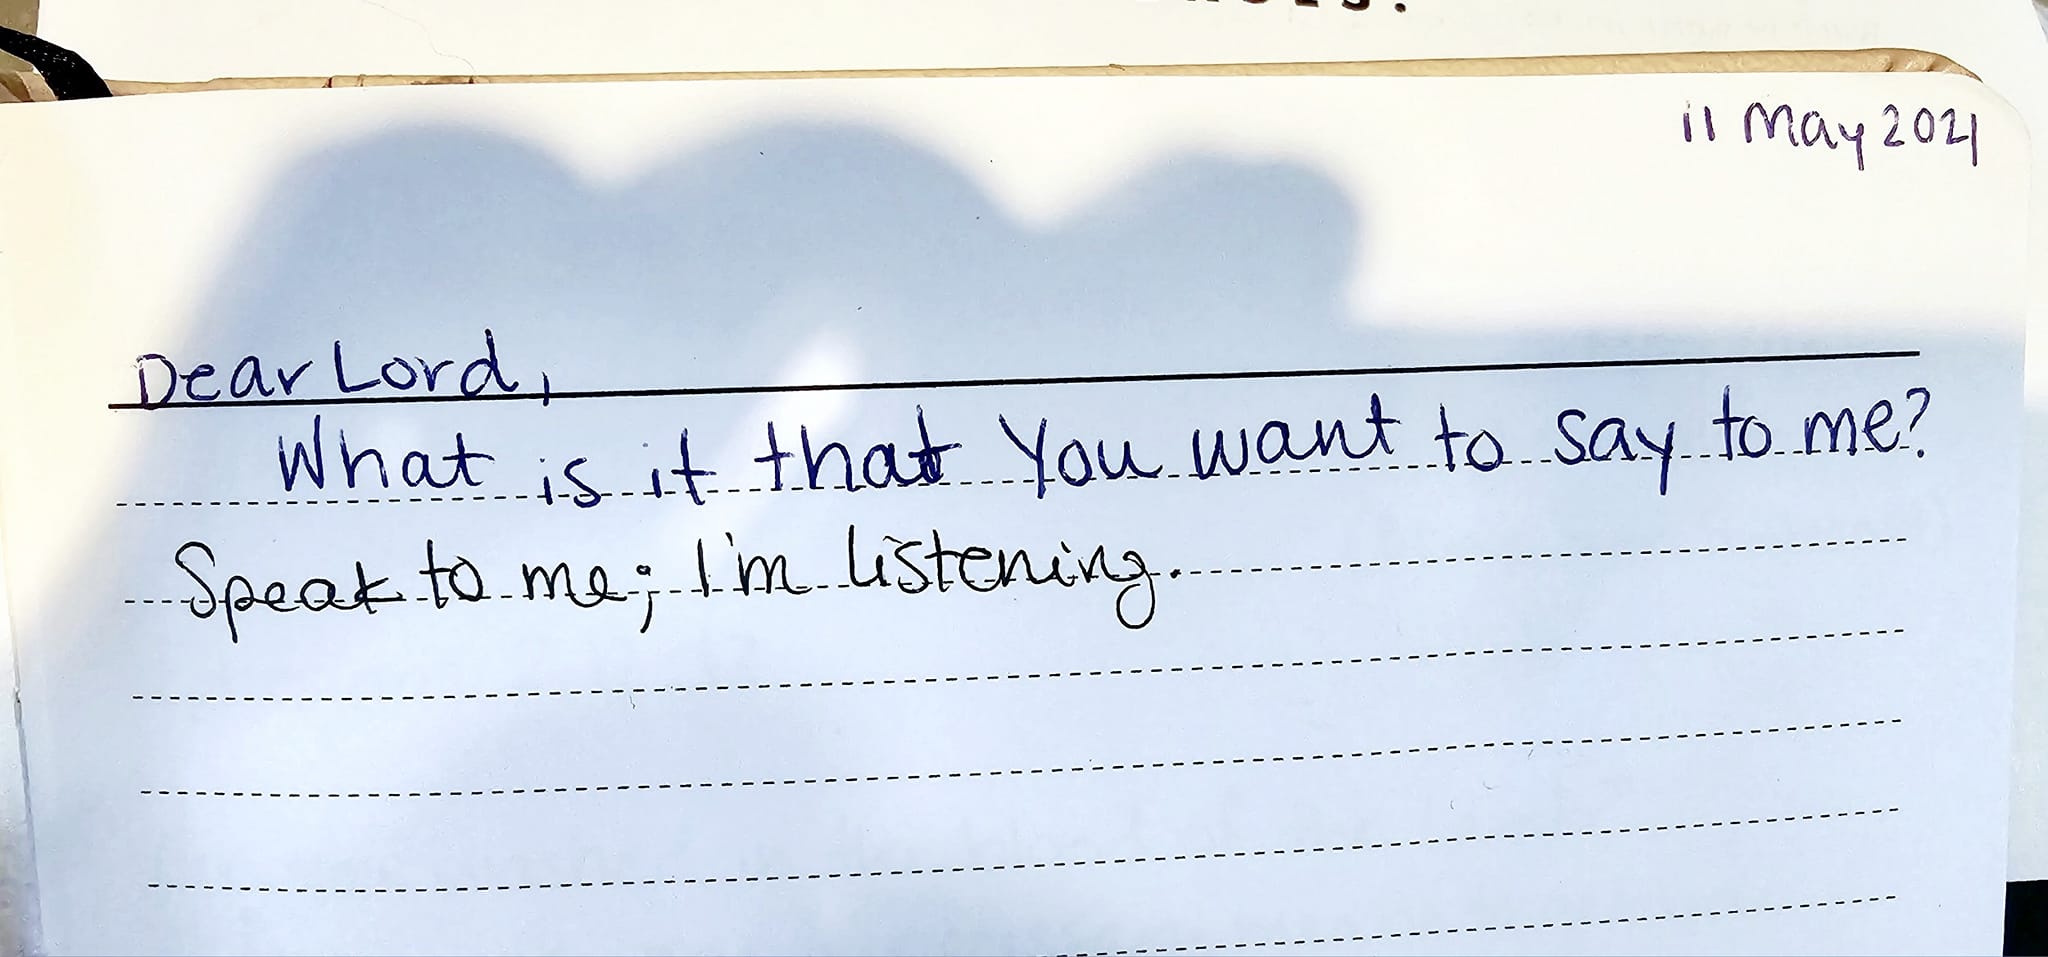 11 May 2021
Dear Lord,
What is it that You want to say to me?
Speak to me; I'm listening.